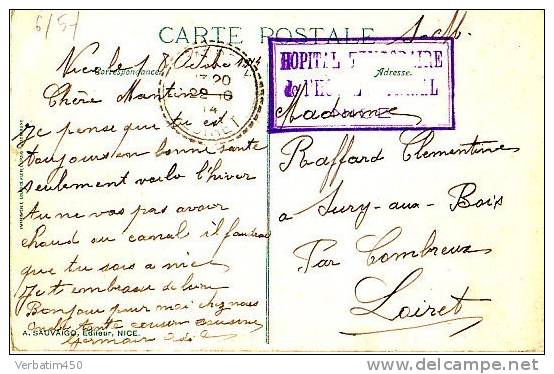 6/57
CARTE POSTALE
S.M.
Nice le 18 Octobre 1914
Correspondance
Adresse.
HOPITAL TEMPORAIRE
de l'HOTEL
NICE
13 20
22 - 6
14
LOIRET
Chère Mantine
Je pense que tu est
toujours en bonne santé
seulement voila l'hiver
tu ne vas pas avoir
chaud au canal il faudrai
que tu sois a nice
Je t embrasse de loin
Bonjour pour moi chez nous
tante cousin cousine
Germain
Madame
Raffard Clementine
a Sury-aux-Bois
Par Combreux
Loiret
A. SAUVAIGO, Editeur, NICE.
Verbatim450
delcampe.net